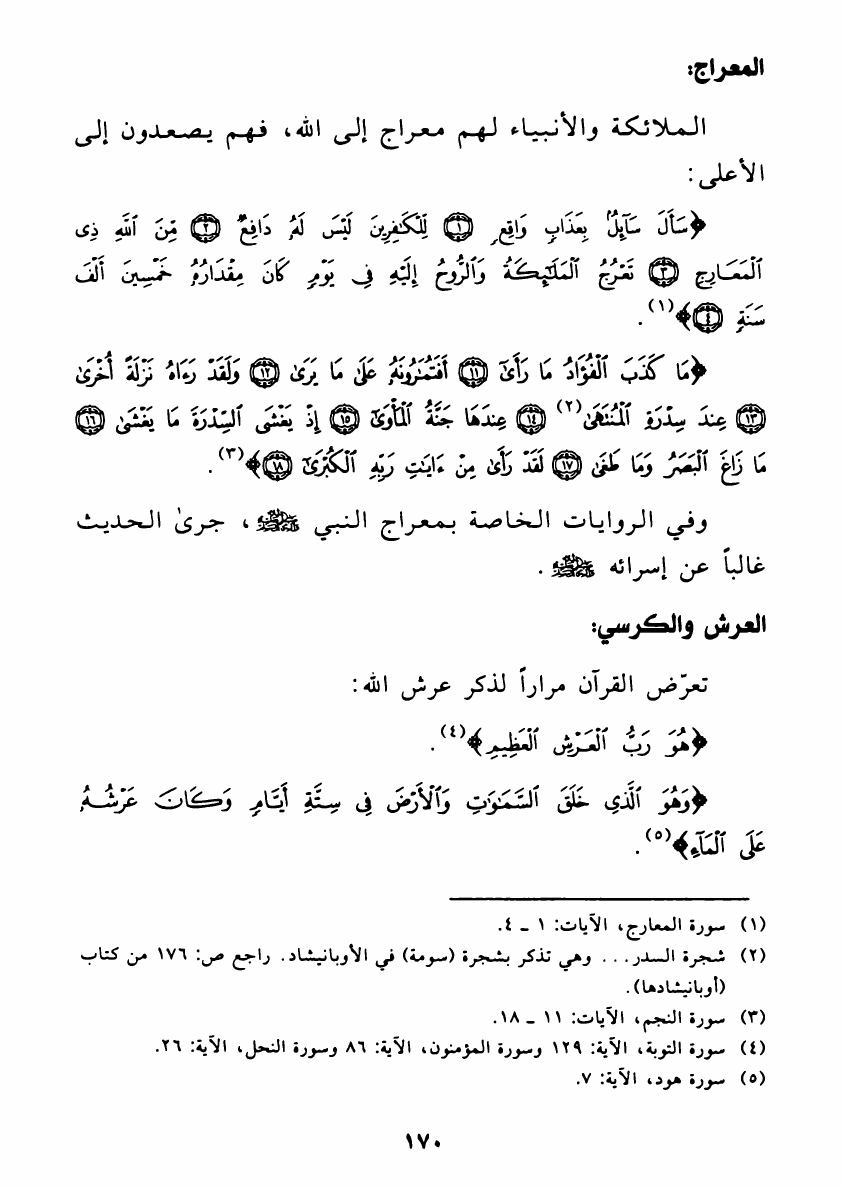 المعراج:
الملائكة والأنبياء لهم معراج إلى الله، فهم يصعدون إلى
الأعلى:
﴿سَأَلَ سَآئِلٌۢ بِعَذَابٍ وَاقِعٍ ۝١ لِّلْكَٰفِرِينَ لَيْسَ لَهُۥ دَافِعٌ ۝٢ مِّنَ ٱللَّهِ ذِى
ٱلْمَعَارِجِ ۝٣ تَعْرُجُ ٱلْمَلَٰٓئِكَةُ وَٱلرُّوحُ إِلَيْهِ فِى يَوْمٍ كَانَ مِقْدَارُهُۥ خَمْسِينَ أَلْفَ
سَنَةٍ ۝٤﴾(١).
﴿مَا كَذَبَ ٱلْفُؤَادُ مَا رَأَىٰٓ ۝١١ أَفَتُمَٰرُونَهُۥ عَلَىٰ مَا يَرَىٰ ۝١٢ وَلَقَدْ رَءَاهُ نَزْلَةً أُخْرَىٰ
۝١٣ عِندَ سِدْرَةِ ٱلْمُنتَهَىٰ(٢) ۝١٤ عِندَهَا جَنَّةُ ٱلْمَأْوَىٰٓ ۝١٥ إِذْ يَغْشَى ٱلسِّدْرَةَ مَا يَغْشَىٰ ۝١٦
مَا زَاغَ ٱلْبَصَرُ وَمَا طَغَىٰ ۝١٧ لَقَدْ رَأَىٰ مِنْ ءَايَٰتِ رَبِّهِ ٱلْكُبْرَىٰٓ ۝١٨﴾(٣).
وفي الروايات الخاصة بمعراج النبي ﷺ، جرىٰ الحديث
غالباً عن إسرائه ﷺ.
العرش والكرسي:
تعرّض القرآن مراراً لذكر عرش الله:
﴿هُوَ رَبُّ ٱلْعَرْشِ ٱلْعَظِيمِ﴾(٤).
﴿وَهُوَ ٱلَّذِى خَلَقَ ٱلسَّمَٰوَٰتِ وَٱلْأَرْضَ فِى سِتَّةِ أَيَّامٍ وَكَانَ عَرْشُهُۥ
عَلَى ٱلْمَآءِ﴾(٥).
(١) سورة المعارج، الآيات: ١ ـ ٤.
(٢) شجرة السدر... وهي تذكر بشجرة (سومة) في الأوبانيشاد. راجع ص: ١٧٦ من كتاب
(أوبانيشادها).
(٣) سورة النجم، الآيات: ١١ ـ ١٨.
(٤) سورة التوبة، الآية: ١٢٩ وسورة المؤمنون، الآية: ٨٦ وسورة النحل، الآية: ٢٦.
(٥) سورة هود، الآية: ٧.
١٧٠